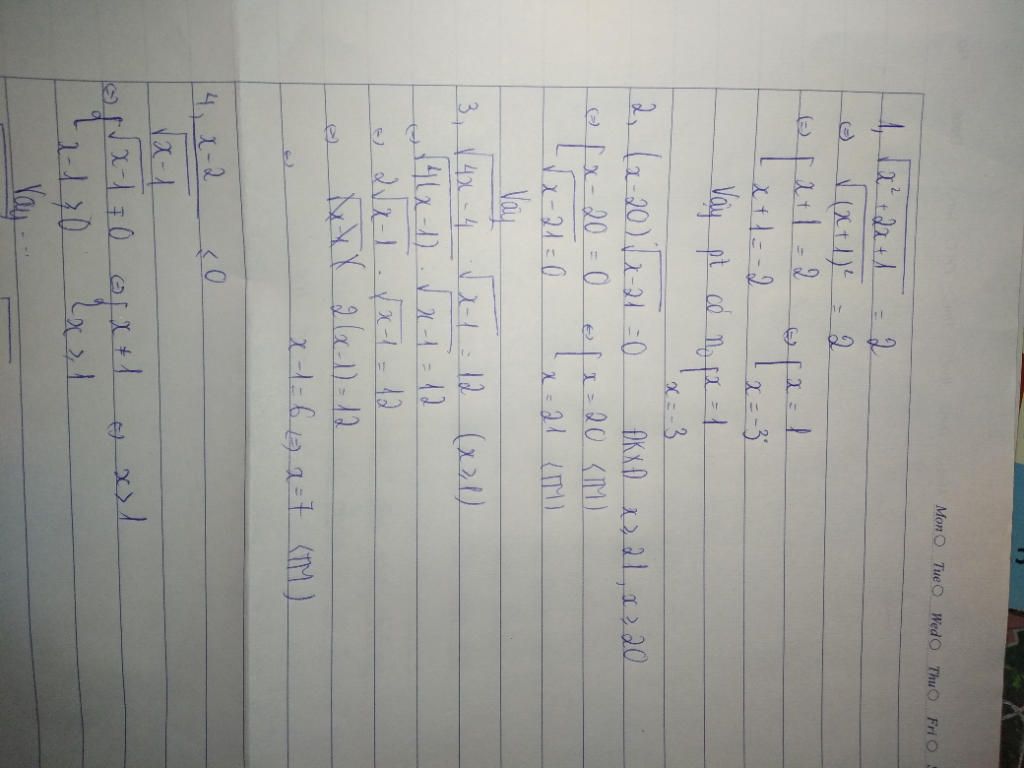 Mon Tue Wed Thu Fri
1, √(x² + 2x + 1) = 2
⇔ √((x+1)²) = 2
⇔ [ x+1 = 2 ⇔ [ x = 1
x+1 = -2 x = -3
Vậy pt có n₀ { x = 1
x = -3
2, (x-20)√(x-21) = 0 ĐKXĐ x ≥ 21, x ≥ 20
⇔ [ x-20 = 0 ⇔ [ x = 20 <TM>
√(x-21) = 0 x = 21 <TM>
Vậy
3, √(4x-4) · √(x-1) = 12 (x ≥ 1)
⇔ √(4(x-1)) · √(x-1) = 12
⇔ 2√(x-1) · √(x-1) = 12
⇔ 2(x-1) = 12
⇔ x-1 = 6 ⇔ x = 7 <TM>
4, (x-2)/√(x-1) ≤ 0
⇔ { √(x-1) ≠ 0 ⇔ { x ≠ 1 ⇔ x > 1
x-1 ≥ 0 x ≥ 1
Vậy ...